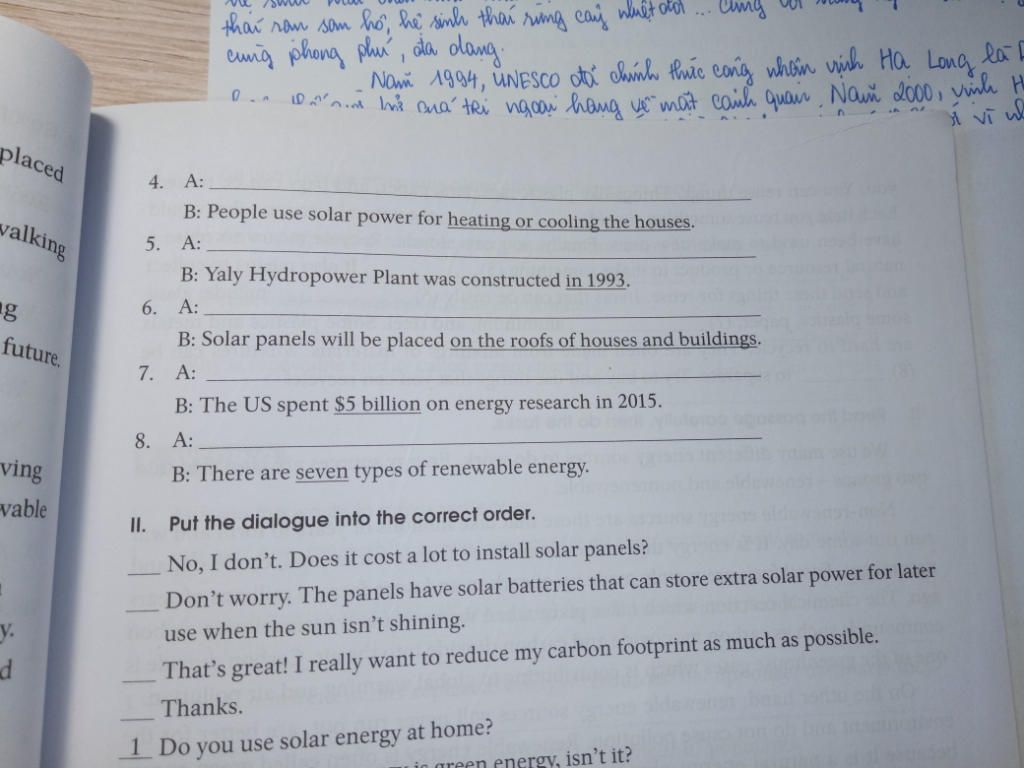 thái rạn san hô, hệ sinh thái rừng cây nhiệt đới ... cùng với
cũng phong phú, đa dạng.
Năm 1994, UNESCO đã chính thức công nhận vịnh Hạ Long là
giá trị ngoại hạng về mặt cảnh quan. Năm 2000, vịnh H
placed
walking
g
future.
ving
vable
y.
d
4. A:
B: People use solar power for heating or cooling the houses.
5. A:
B: Yaly Hydropower Plant was constructed in 1993.
6. A:
B: Solar panels will be placed on the roofs of houses and buildings.
7. A:
B: The US spent $5 billion on energy research in 2015.
8. A:
B: There are seven types of renewable energy.
II. Put the dialogue into the correct order.
___ No, I don't. Does it cost a lot to install solar panels?
___ Don't worry. The panels have solar batteries that can store extra solar power for later
use when the sun isn't shining.
___ That's great! I really want to reduce my carbon footprint as much as possible.
___ Thanks.
1 Do you use solar energy at home?
is green energy, isn't it?